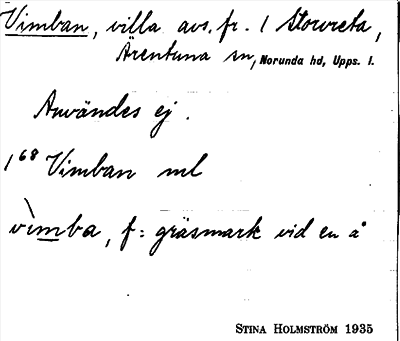 Vimban, villa avs. fr. 1 Storvreta,
Ärentuna sn, Norunda hd, Upps. l.
Användes ej.
1⁶⁸ Vimban ml
vìmba, f: gräsmark vid en å
STINA HOLMSTRÖM 1935